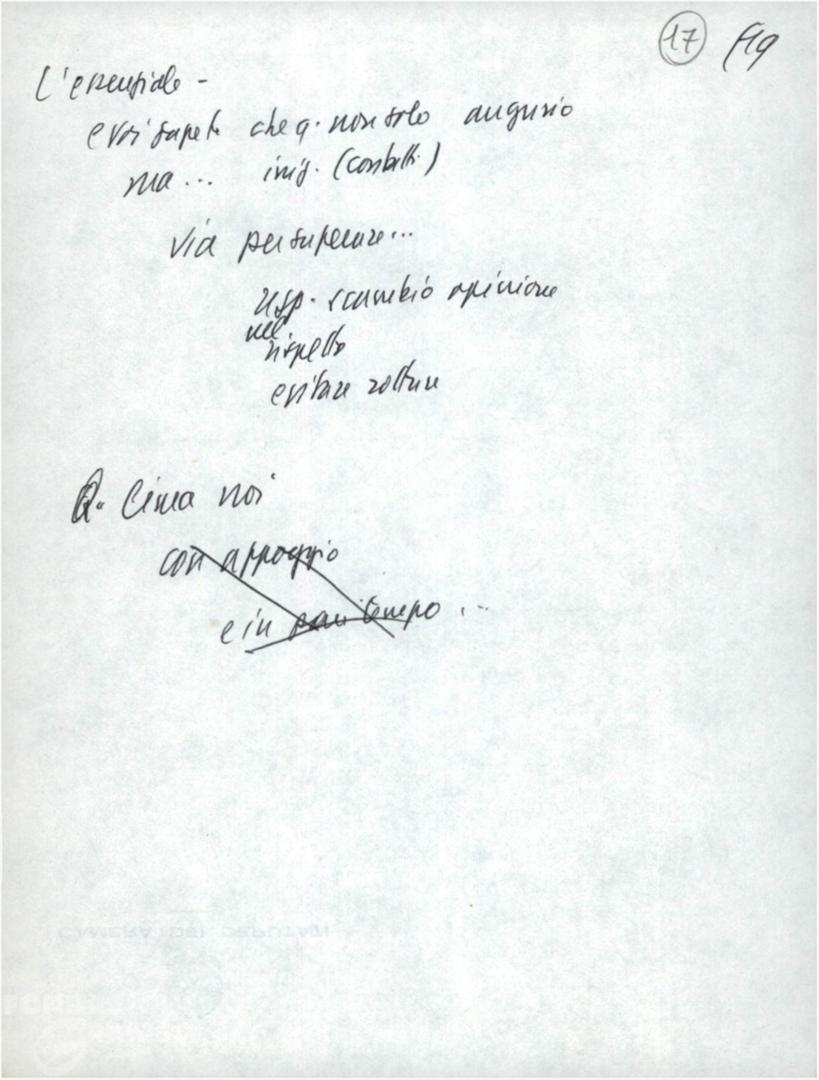 17
L'essenziale -
e voi sapete che q. non solo augurio
ma... iniz. (contatti)
via per superare...
scambio opinione
nel
rispetto
evitare rotture
Q. linea noi
con appoggio
e in pari tempo ...
CAMERA DEI DEPUTATI